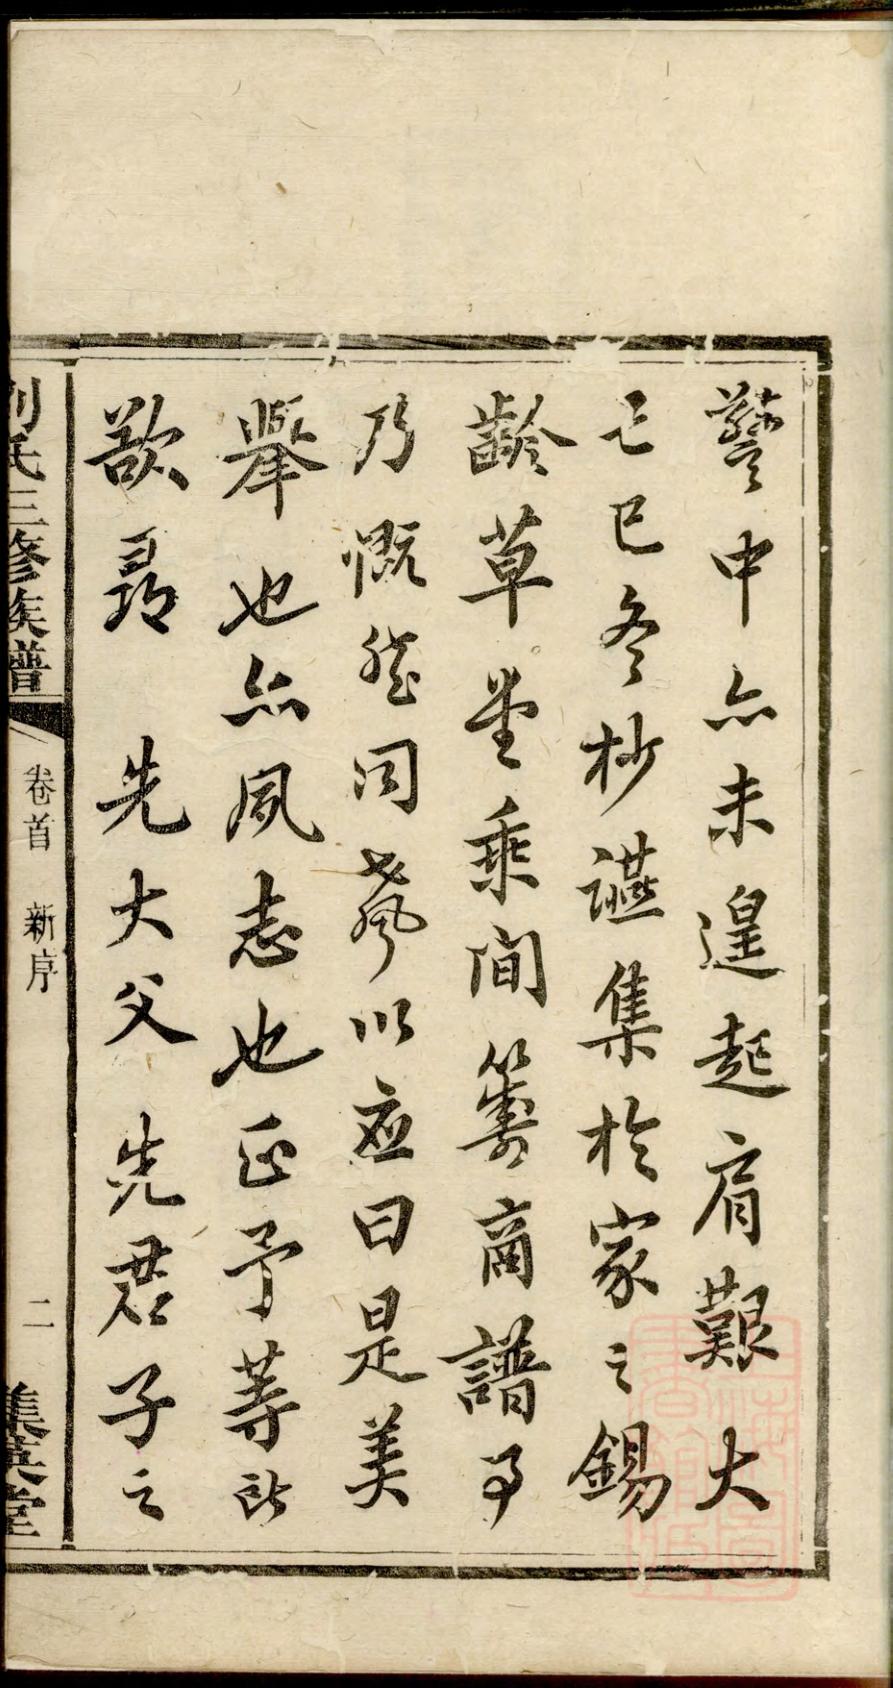 警中亦未遑起肩艱大
己巳冬杪讌集於家之錫
齡草堂乘間籌商譜事
乃慨然同聲以應曰是美
舉也亦夙志也正予等所
欲尋　先大父　先君子之
劉氏三修族譜
卷首　新序
二
集英堂